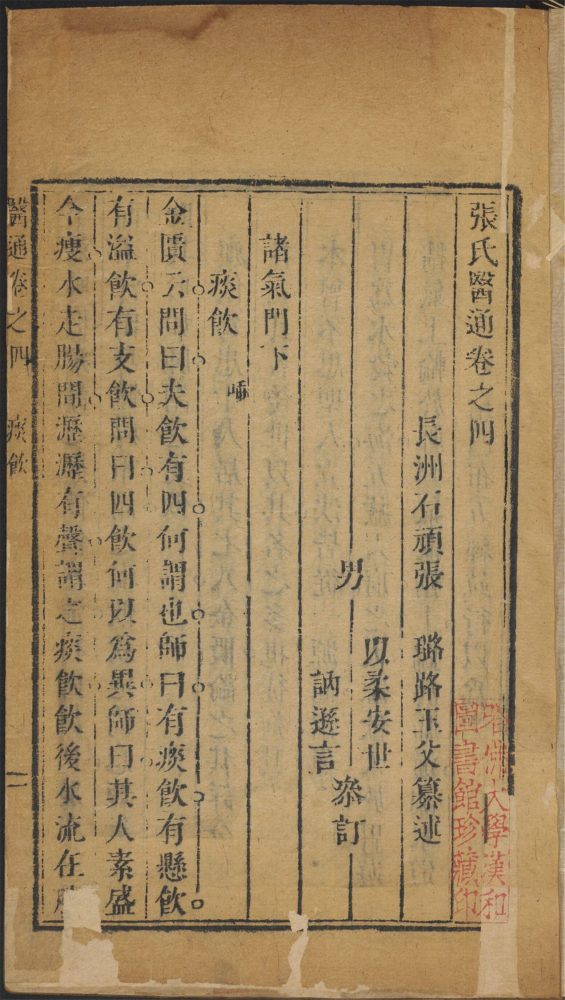 張氏醫通卷之四
長洲石頑張 璐路玉父纂述
男 以柔安世
訥遜言 叅訂
諸氣門下
痰飲 唾
金匱云問曰夫飲有四何謂也師曰有痰飲有懸飲
有溢飲有支飲問曰四飲何以為異師曰其人素盛
今瘦水走腸間瀝瀝有聲謂之痰飲飲後水流在脇
醫通卷之四 痰飲 一
大學漢和
圖書館珍藏印